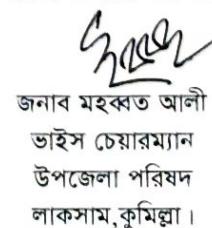 জনাব মহব্বত আলী
ভাইস চেয়ারম্যান
উপজেলা পরিষদ
লাকসাম,কুমিল্লা।